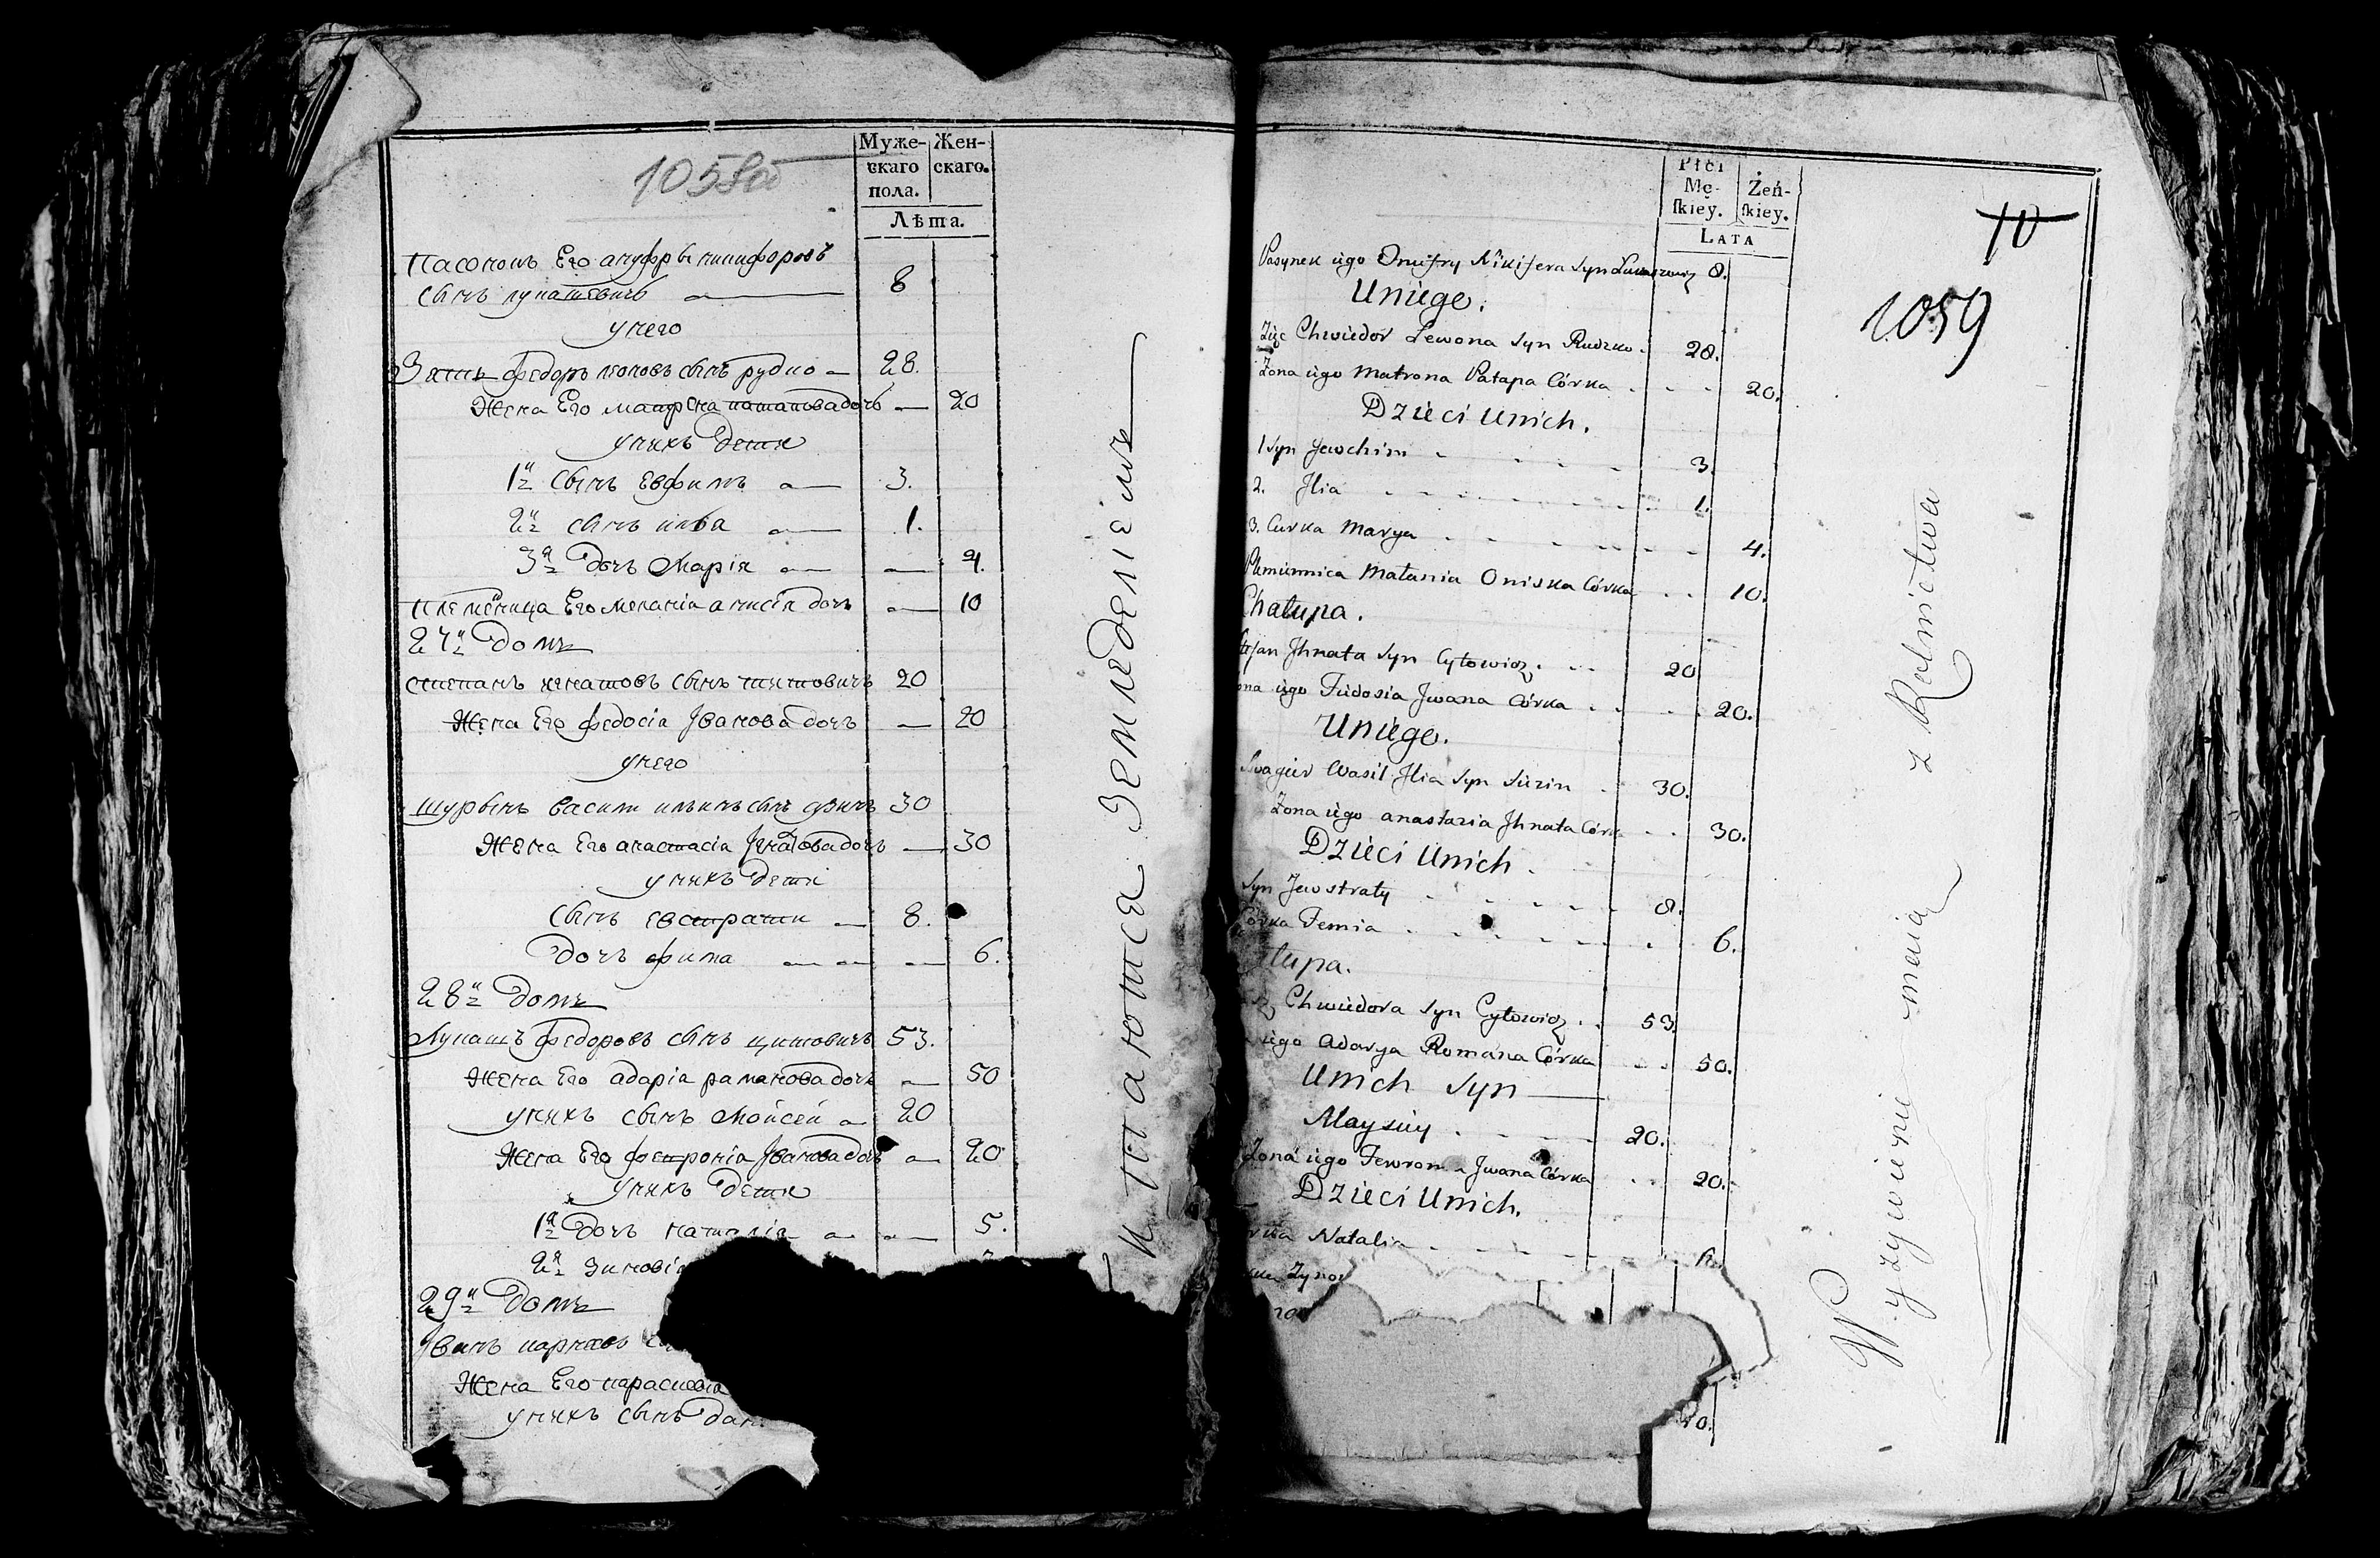 1058об
Муже-
скаго
пола.
Жен-
скаго.
Лѣта.
Пасонокъ Его ануфры никифоровъ
сынъ лукашевичъ 8
унего
Зять федоръ леоновъ сынъ рудко 28.
Жена Его матрена потаповадочь 20
унихъ дети
1й сынъ евфимъ 3.
2й сынъ илья 1.
3я дочь Марія 4.
племеница Его меланія анисія дочь 10
27й Домъ
степанъ игнатовъ сынъ титовичъ 20
Жена Его федосія Іванова дочь 20
унего
шурынъ васили ильинъ сынъ 30
Жена Его анастасія Ігнатовадочь 30
унихъ дети
сынъ евстрати 8.
дочь фима 6.
28й Домъ
Лукашъ федоровъ сынъ цитовичъ 53.
Жена Его адарія романовадочь 50
унихъ сынъ Мойсей 20
Жена Его февронія Івановадочь 20
унихъ дети
1я дочь наталія 5.
2я зиновія
29й Домъ
Жена Его параскевія
унихъ сынъ
питаются Земледеліемъ
Płci
Mę-
ſkiey.
Żeń-
ſkiey.
LATA
10
1059
Pasynek iego Onufry Nikifera Syn Łukaszewicz 8.
Uniego.
Zięc Chwiedor Lewona Syn Rudzko 28.
Żona iego Matrona Patapa Córka 20.
Dzieci Unich.
1 Syn Jewchim 3.
2. Jlia 1.
3. Curka Marya 4.
Plemiennica Małania Oniska Córka 10.
Chałupa.
Stefan Jhnata Syn Cytowicz 20
ona iego Fiedosia Jwana Córka 20.
Uniego.
Swagier Wasil Jlia Syn 30.
Żona iego anastazia Jhnata Córka 30.
Dzieci Unich.
Syn Jewstraty 8.
Córka Femia 6.
łupa.
sz Chwiedora Syn Cytowicz 53.
iego Adarya Romana Córka 50.
Unich Syn
Maysiey 20.
Żona iego Fewron a Jwana Córka 20.
Dzieci Unich.
Natalia
Zynow
Wyzywienie maią z Rolnictwa